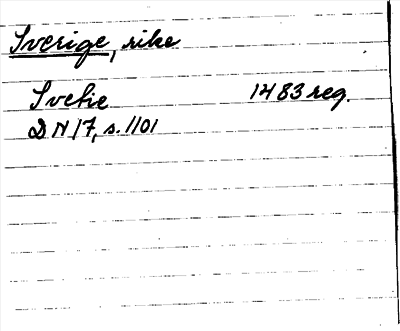 Sverige, rike
Svecie 1483 reg.
DN 17, s. 1101